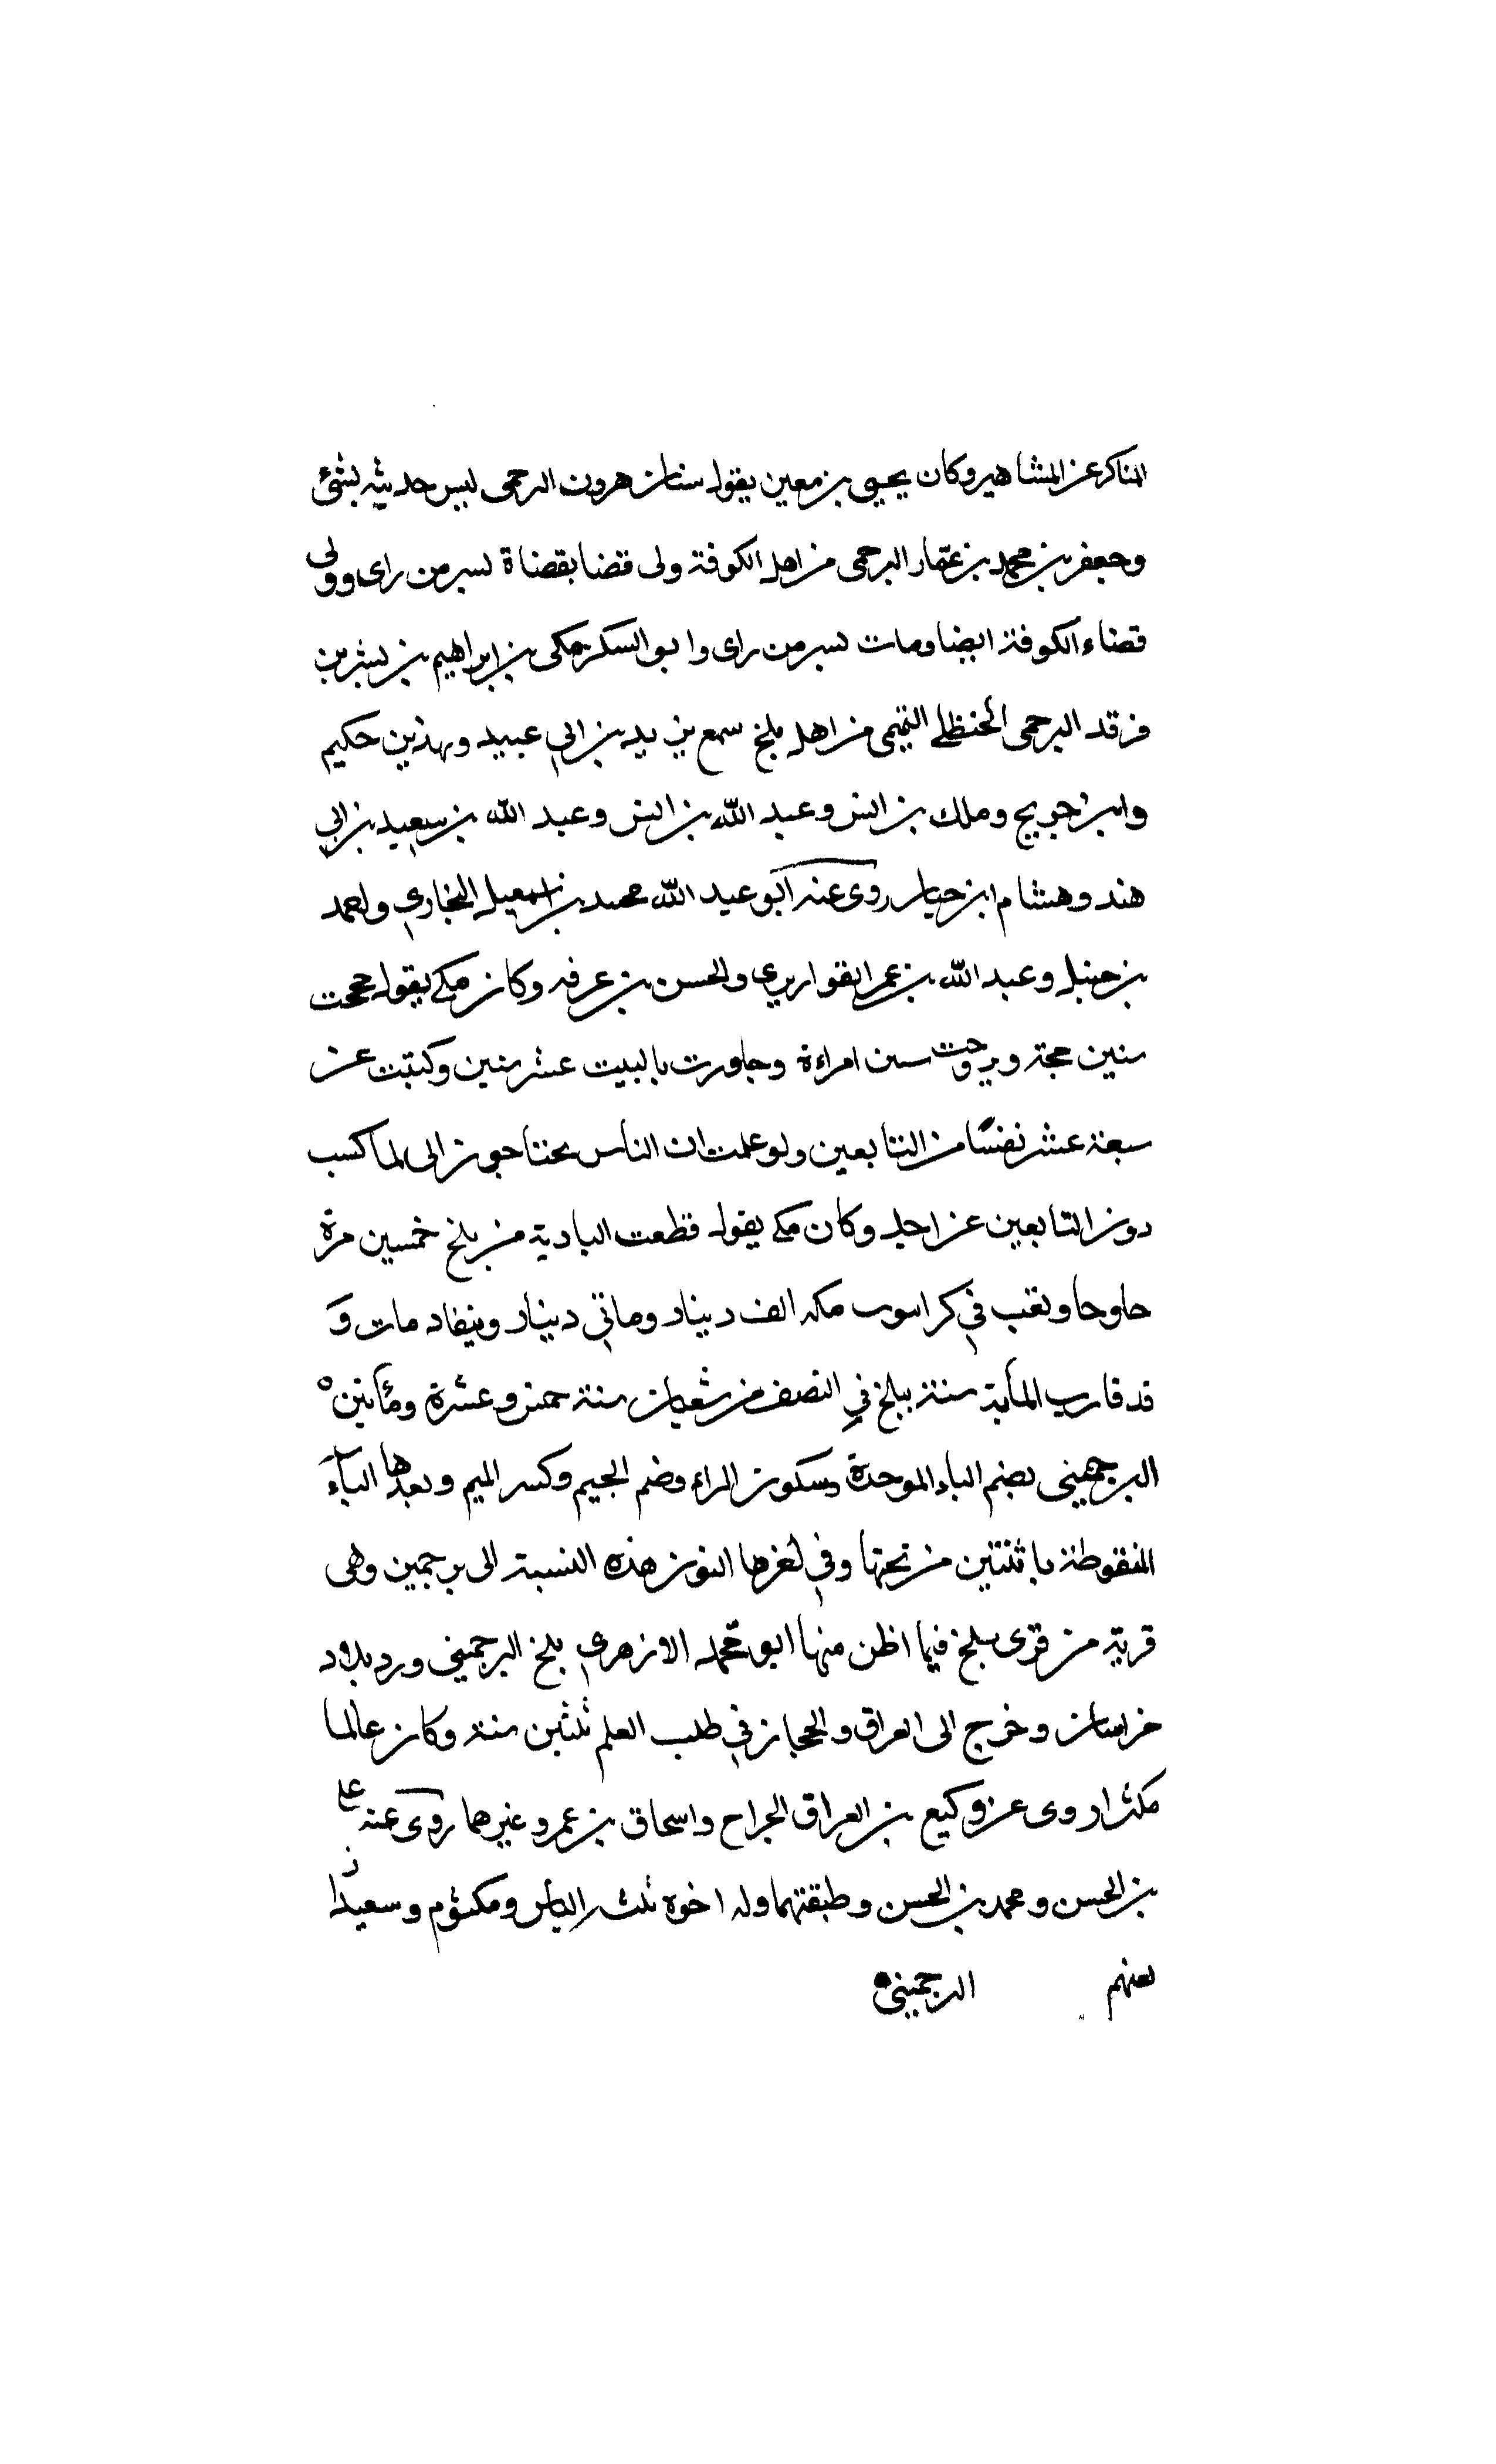 المناكر عن المشاهير وكان يحيى بن معين يقول سنان بن هرون البرجمي ليس حديثه بشئ
وجعفر بن محمد بن عمار البرجمى من اهل الكوفة ولى قضا بقضاة بسر من راى وولى
قضاء الكوفة ايضا ومات بسر من راى وابو السكن مكى بن ابراهيم بن بشر بن
فرقد البرجمى الحنظلي التميمى من اهل بلخ سمع يزيد بن ابي عبيد وبهذبن حكيم
وابن جريج وملك بن انس وعبد الله بن انس وعبد الله بن سعيد بن ابي
هند وهشام ابن حسان روى عنه ابو عبد الله محمد بن اسمعيل البخاري واحمد
بن حنبل وعبد الله بن عمر القواريري والحسن بن عرفه وكان مكي يقول حججت
ستين حجة وتزوجت ستين امراءة وجاورت بالبيت عشر سنين وكتبت عن
سبعة عشر نفسًا من التابعين ولو علمت ان الناس يحتاجون الى لما كتب
دون التابعين عن احد وكان مكي يقول قطعت البادية من بلخ خمسين مرة
حاوحا في كرا مكه الف دينار وماتي دينار ونيفا مات و
قد قارب المأية سنة ببلخ في النصف من شعبان سنة خمس وعشرة ومأتين ه
البرجمينى بضم الباء الموحدة وسكون الراء وضم الجيم وكسر الميم وبعدها الياء
المنقوطة باثنتين من تحتها وفي اخرها النون هذه النسبة الى برجمين وهى
قرية من قرى بلخ فيما اظن منها ابو محمد الازهري بلخ البرجميني ورد بلاد
خراسان وخرج الى العراق والحجاز في طلب العلم ثلثين سنة وكان عالما
مكثرا روى عن وكيع بن العراق الجراح واسحاق بن عمرو غيرهما روى عنه علي
بن الحسن ومحمد بن الحسن وطبقتهما وله اخوه ثلث الياس ومكتوم وسعيد
البرجميني ه